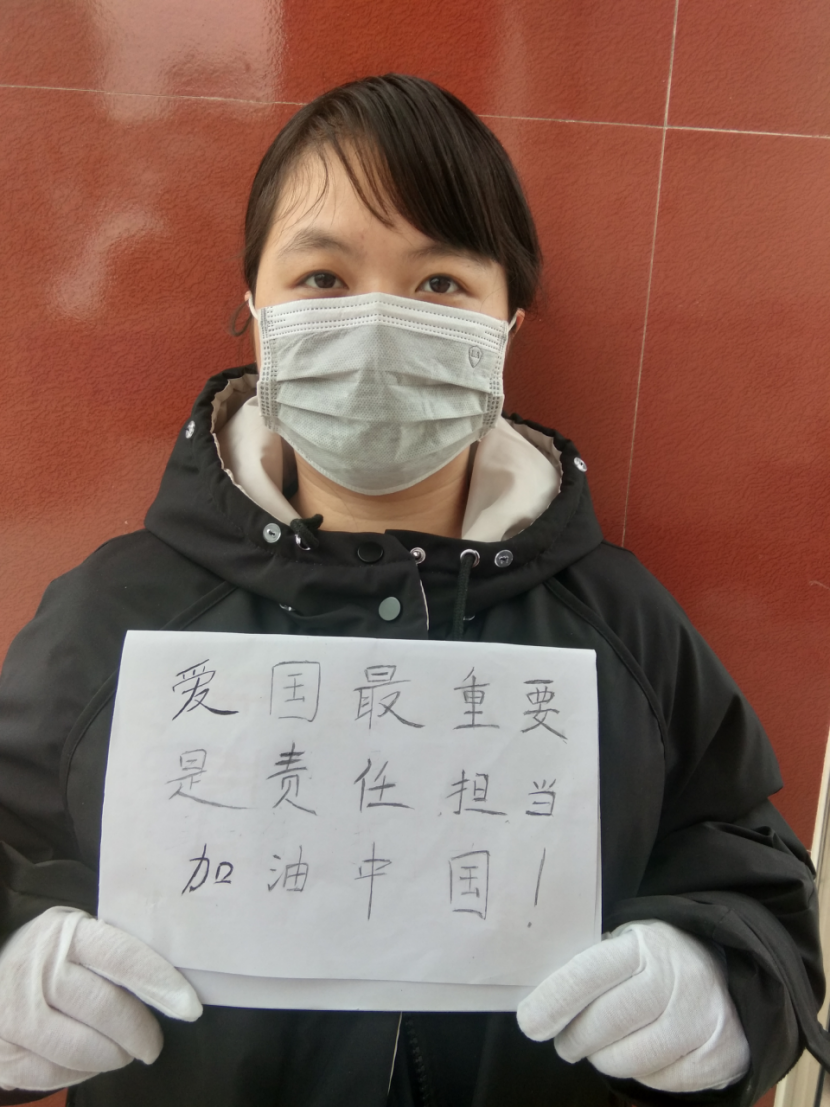 爱国最重要
是责任担当
加油中国！